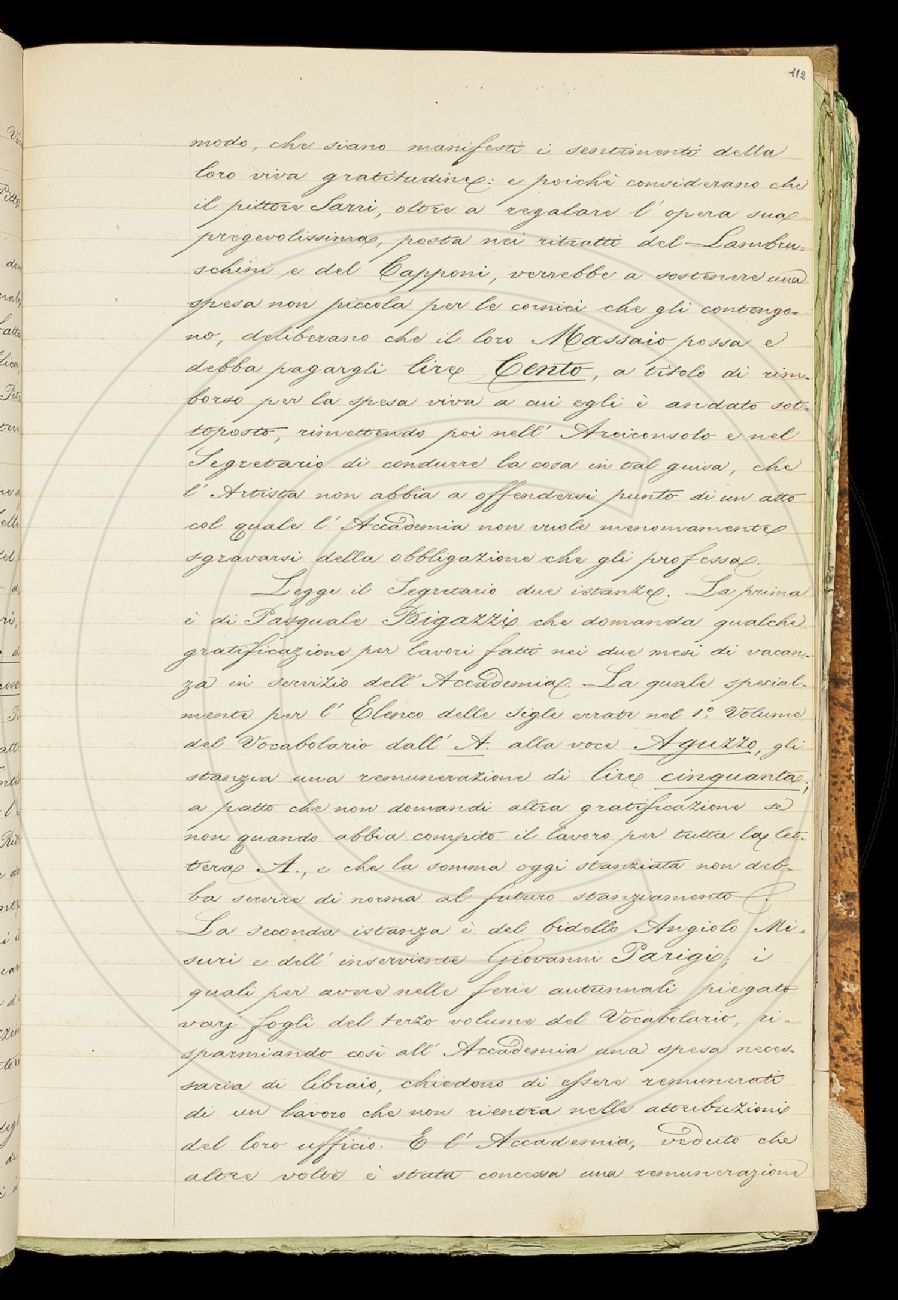 112
modo, che siano manifesti i sentimenti della
loro viva gratitudine: e poichè considerano che
il pittore Sarri, oltre a regalare l'opera sua
pregevolissima, posta nei ritratti del Lambru-
schini e del Capponi, verrebbe a sostenere una
spesa non piccola per le cornici che gli contengo-
no, deliberano che il loro Massaio possa e
debba pagargli lire Cento, a titolo di rim-
borso per la spesa viva a cui egli è andato sot-
toposto, rimettendo poi nell'Arciconsolo e nel
Segretario di condurre la cosa in tal guisa, che
l'Artista non abbia a offendersi punto di un atto
col quale l'Accademia non vuole menomamente
sgravarsi della obbligazione che gli professa.
Legge il Segretario due istanze. La prima
è di Pasquale Bigazzi che domanda qualche
gratificazione per lavori fatti nei due mesi di vacan-
za in servizio dell'Accademia. La quale special-
mente per l'Elenco delle sigle errate nel 1.° Volume
del Vocabolario dall'A alla voce Aguzzo, gli
stanzia una remunerazione di lire cinquanta;
a patto che non domandi altra gratificazione se
non quando abbia compito il lavoro per tutta la let-
tera A., e che la somma oggi stanziata non deb-
ba servire di norma al futuro stanziamento.
La seconda istanza è del bidello Angiolo Mi-
suri e dell'inserviente Giovanni Parigi, i
quali per avere nelle ferie autunnali piegato
varj fogli del terzo volume del Vocabolario, ri-
sparmiando così all'Accademia una spesa neces-
saria di libraio, chiedono di essere remunerati
di un lavoro che non rientra nelle attribuzioni
del loro ufficio. E l'Accademia, veduto che
altre volte è stata concessa una remunerazione